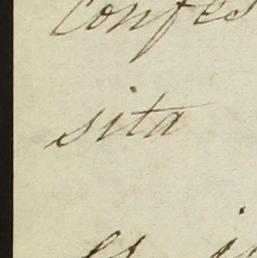 confes
sita